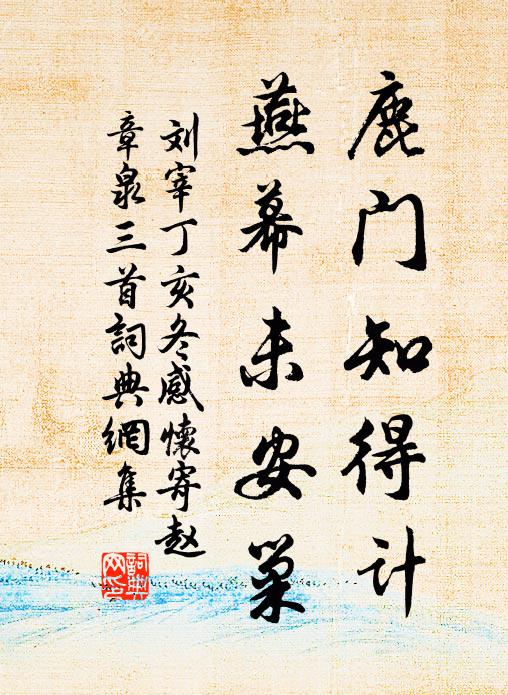 鹿门知得计
燕幕未安巢
刘宰丁亥冬感怀寄赵
章泉三首詞典網集